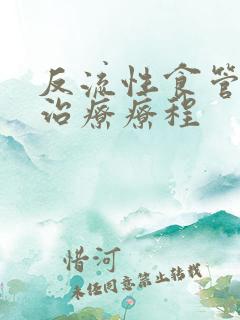 反流性食管
治疗疗程
惜河
未经同意禁止转载